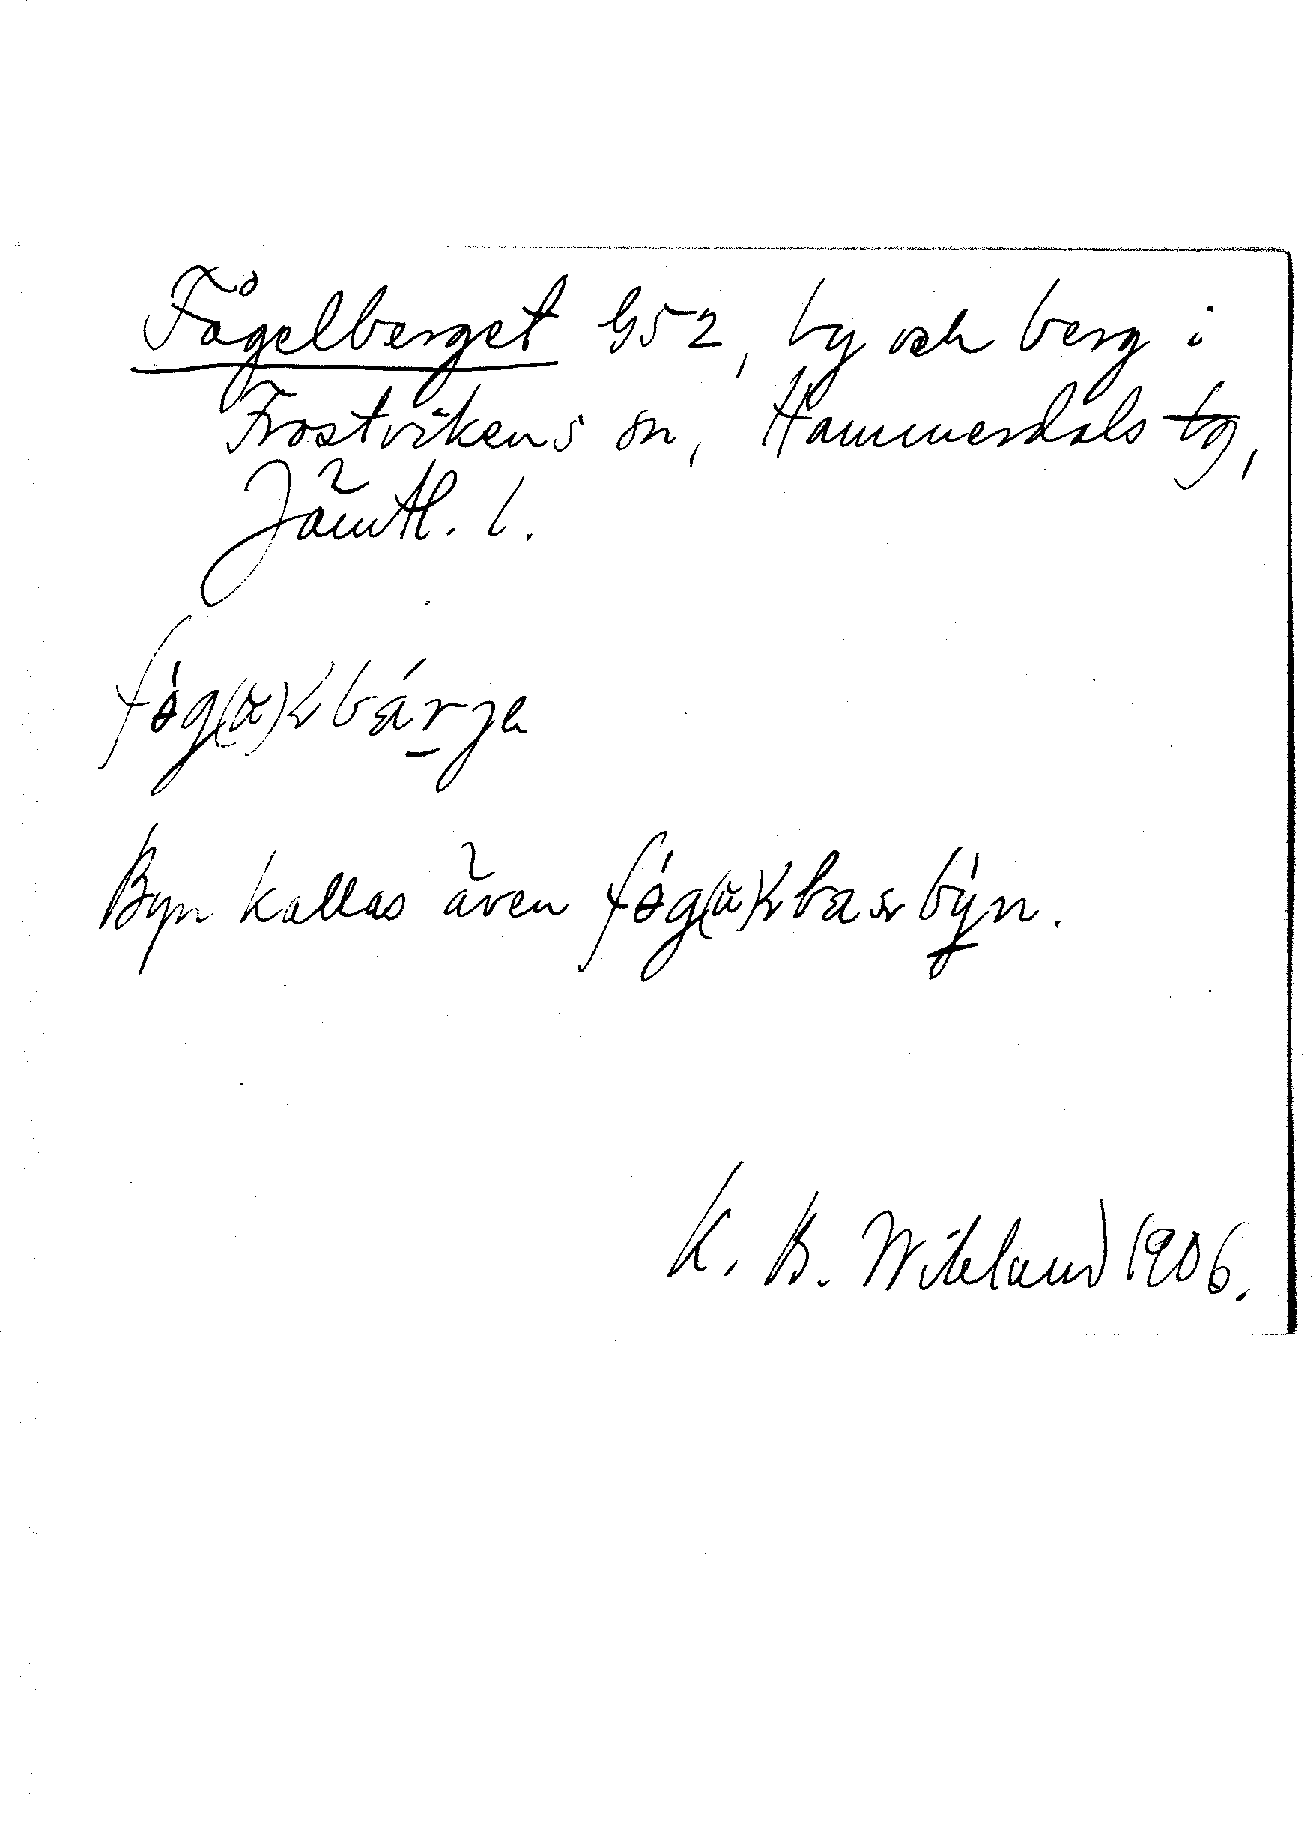 Fågelberget G52, by och berg i
Frostvikens sn, Hammerdals tg,
Jämtl. l.
fóg(a)ɽbárjɐ
Byn kallas även fóg(a)ɽbasbýn.
K. B. Wiklund 1906.